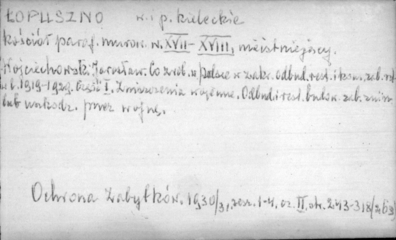 ŁOPUSZNO w. p. kieleckie
kościół paraf. murow. w. XVII-XVIII, nieistniejący.
Wojciechowski Jarosław. Co zrob. w Polsce w zakr. odbud. rest. i kons. zab.
1919-1929. Część I. Zniszczenia wojenne. Odbud. i rest. budow. zab. zniszcz.
lub uszkodz. przez wojnę.
Ochrona Zabytków. 1930/31, zesz. 1-4, cz. II, str. 243-318